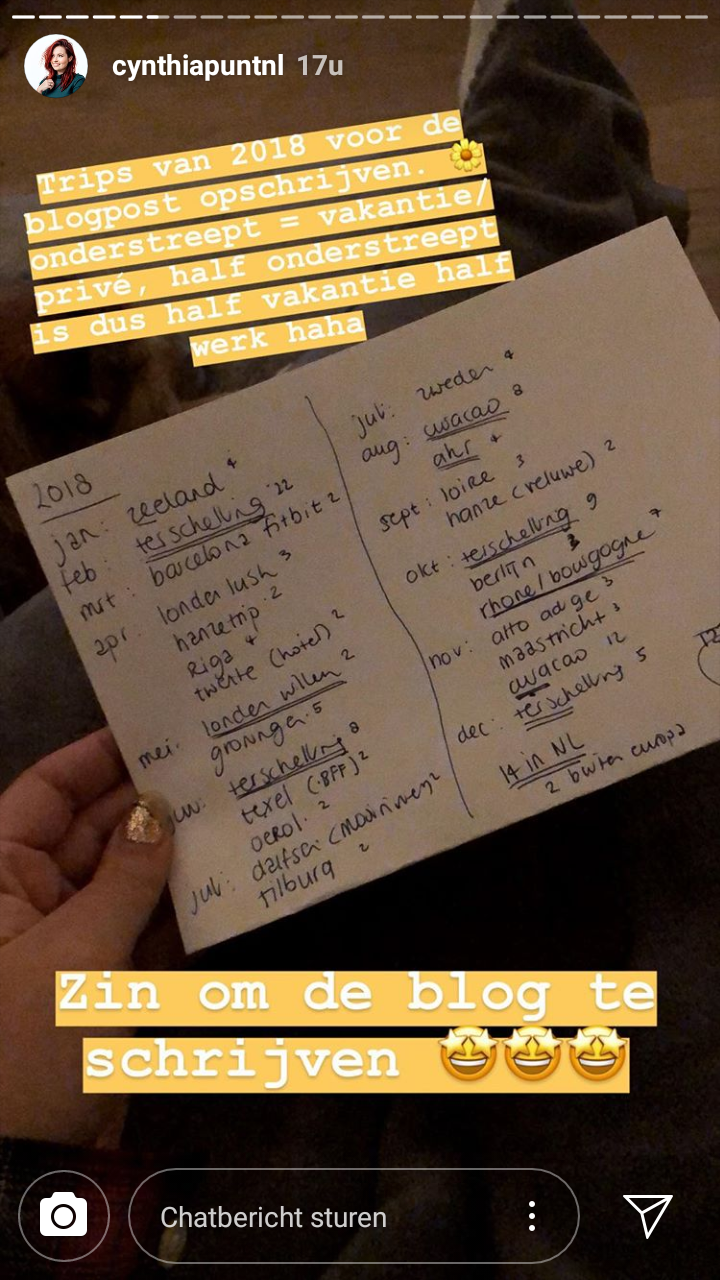 cynthiapuntnl 17u
Trips van 2018 voor de
blogpost opschrijven. 🌼
onderstreept = vakantie/
privé, half onderstreept
is dus half vakantie half
werk haha
2018
jan: zeeland 4
feb: terschelling 22
mrt: barcelona fitbit 2
apr: londen lush 3
hanzetrip 2
Riga 4
twente (hotel) 2
mei: londen 2
groningen 5
jun: terschelling 8
texel (BFF) 2
oerol 2
jul: dalfsen 2
tilburg 2
jul: zweden 4
aug: curacao 8
ahr 4
sept: loire 3
hanze (veluwe) 2
okt: terschelling 9
berlijn 3
rhone/bourgogne 7
alto adige 3
nov: maastricht 3
curacao 12
dec: terschelling 5
14 in NL
2 buiten europa
Zin om de blog te
schrijven 🤩🤩🤩
Chatbericht sturen